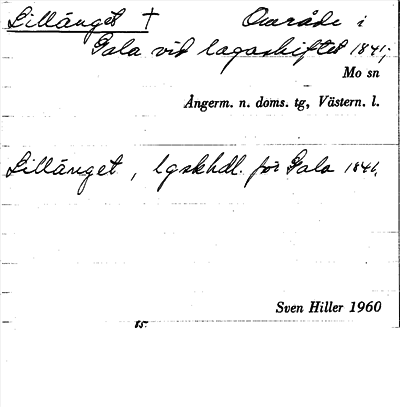 Lillänget † Område i
Gala vid lagaskiftet 1841;
Mo sn
Ångerm. n. doms. tg, Västern. l.
Lillänget, lgskhdl. för Gala 1841.
Sven Hiller 1960